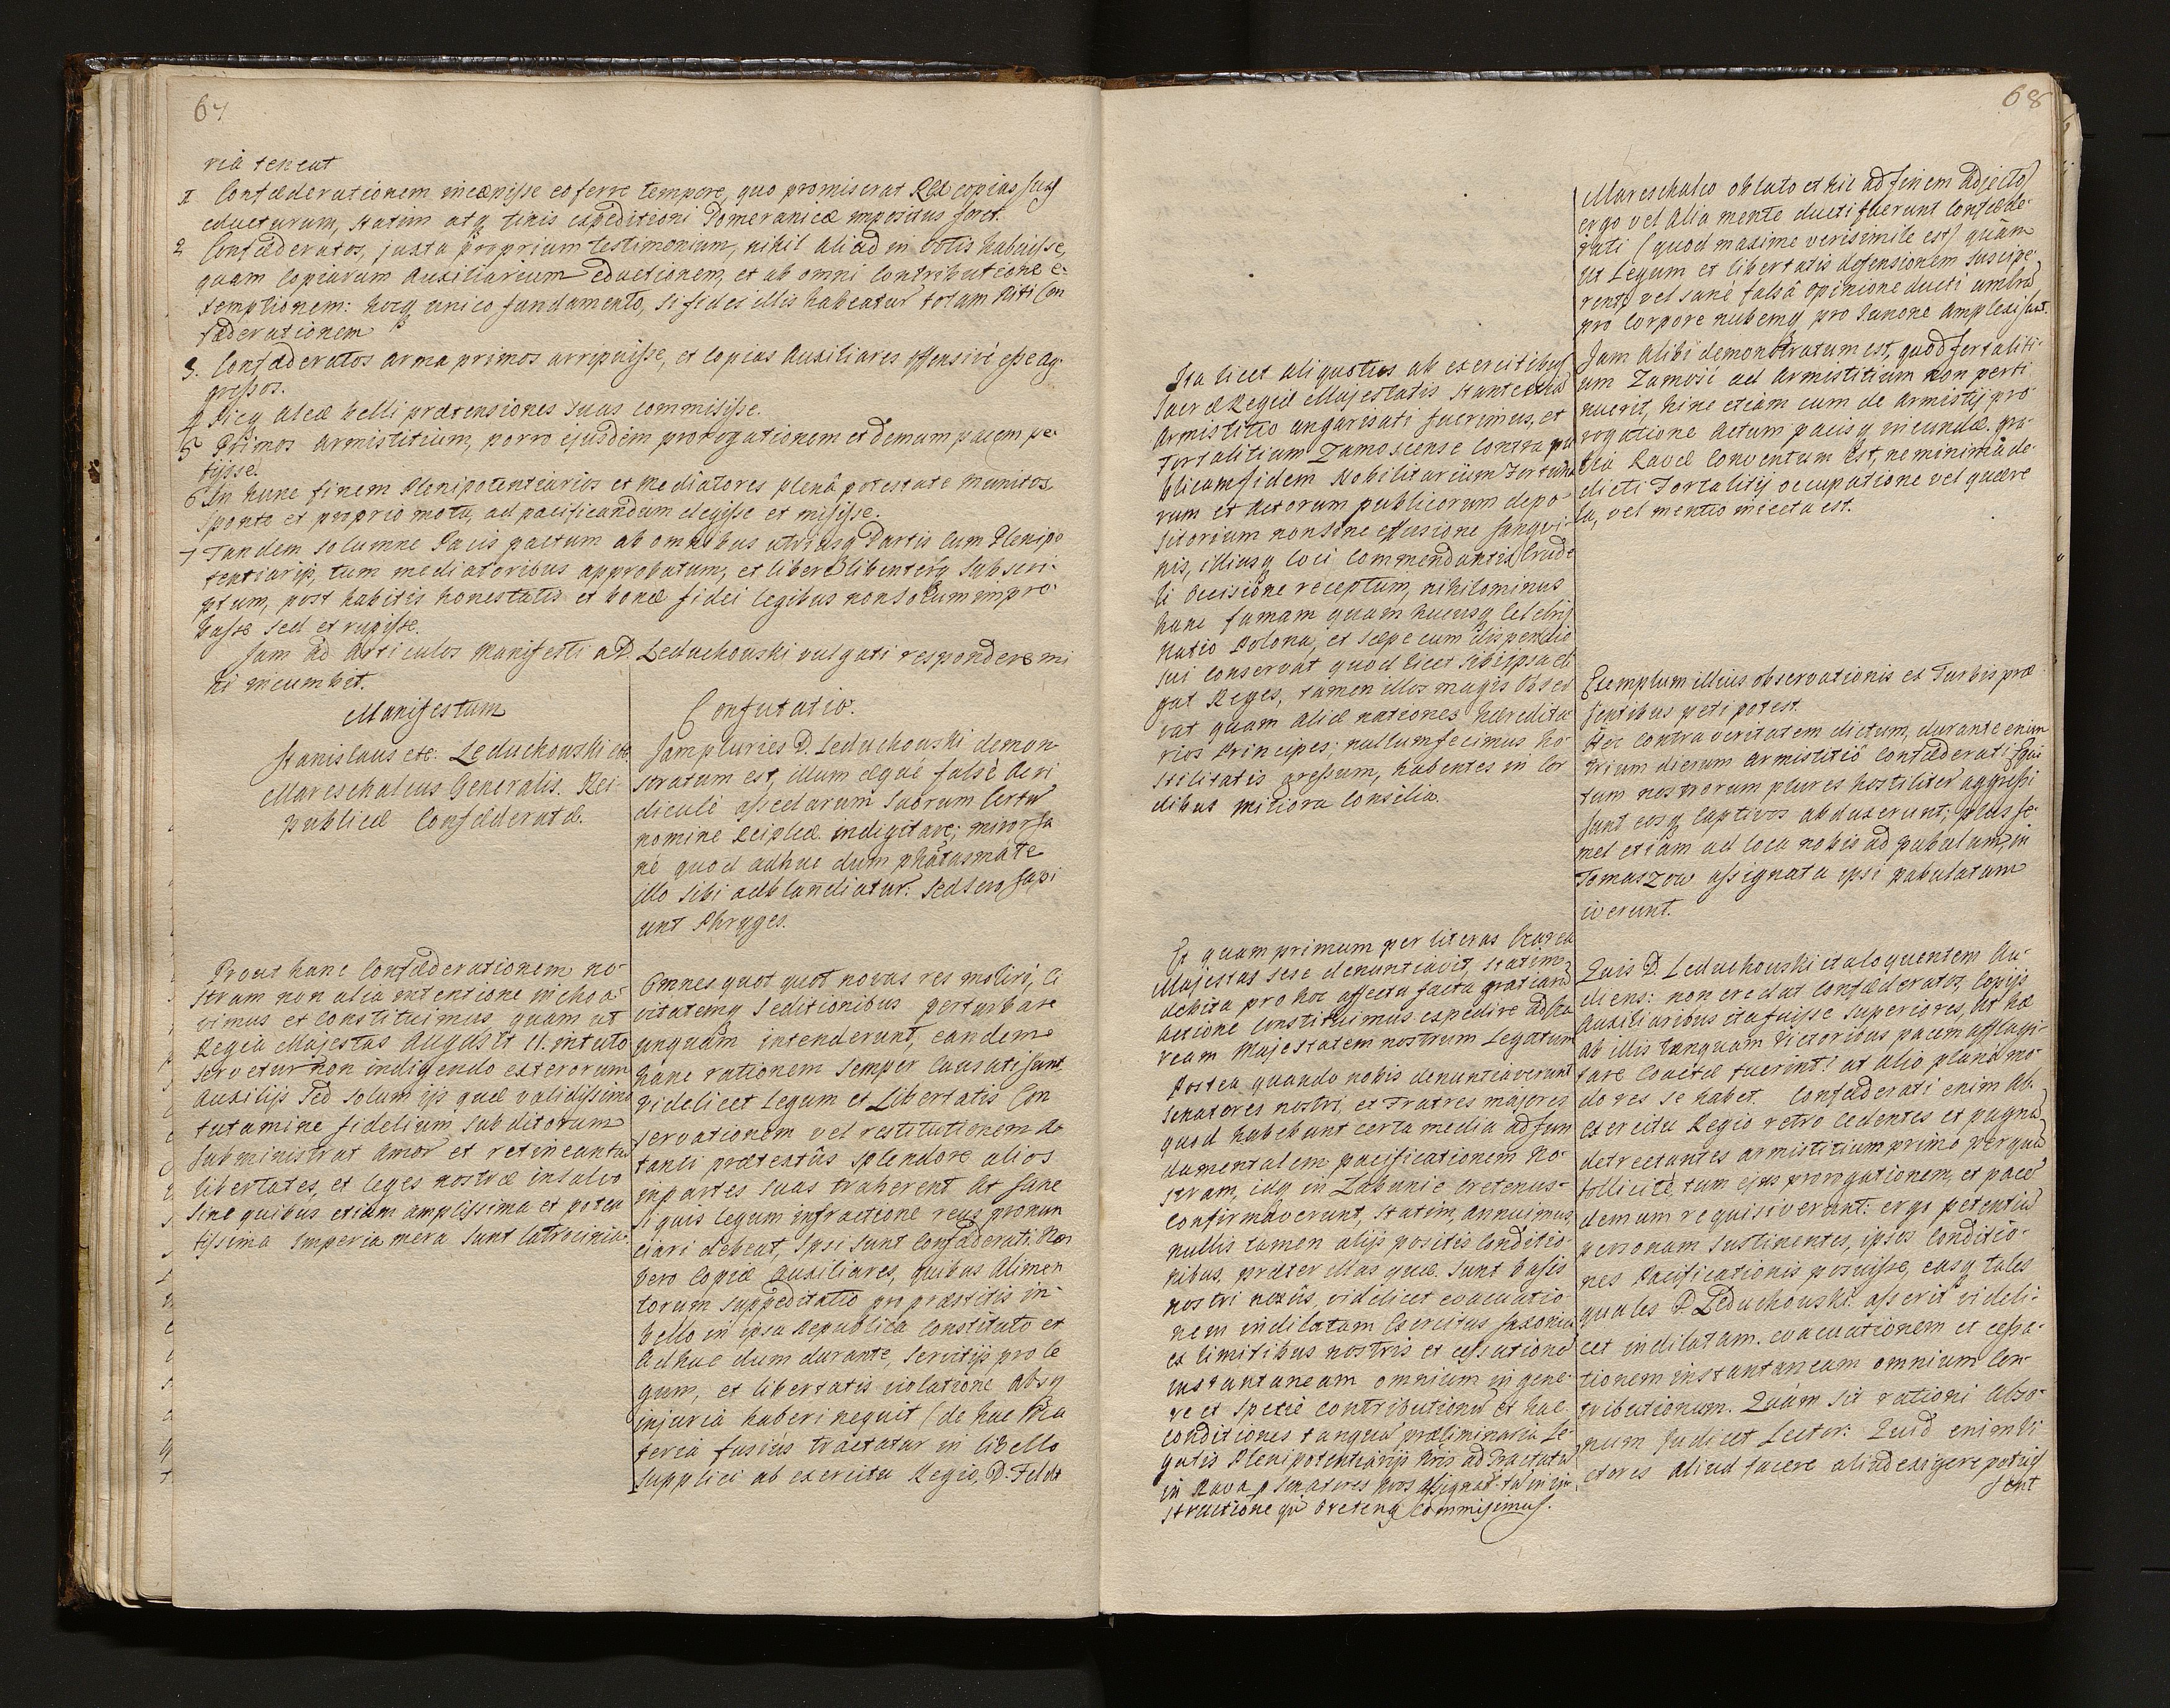 67
ria teneat
1 Confæderationem incæpisse eo ferre tempore, quo promiserat Rex copias suas
educturum, statim atq finis expeditioni Pomeranicæ impositus foret.
2 Confæderatos, juxta proprium testimonium, nihil aliud in votis habuisse,
quam Copiarum Auxiliarium eductionem, et ab omni Contributione e-
xemptionem: hocq unico fundamento, si fides illis habeatur totam niti Con
fæderationem
3. Confæderatos arma primos arripuisse, et Copias Auxiliares offensivè esse ag-
gressos.
4 Sicq aleæ belli prætensiones suas commisisse.
5 Primos armistitium, porro ejusdem prorogationem et demum pacem pe-
tijsse.
6 In hunc finem Plenipotentiarios et Mediatores plenâ potestate munitos
sponte et proprio motu, ad pacificandum elegisse et misisse.
7 Tandem solumne Pacis pactum ab omnibus utriusq Partis cum Plenipo
tentiarijs, tum mediatoribus approbatum, et liberè libenterq subscri-
ptum, post habitis honestatis et bonæ fidei legibus non solum impro-
basse sed et rupisse.
Jam ad Articulos Manifesti a D. Leduchowski vulgati respondere mi
hi incumbit.
Manifestum
Stanislaus etc: Leduchowski etc.
Mareschalcus Generalis. Rei-
publicæ Confæderatæ.
Prout hanc Confæderationem no-
stram non alia intentione inchoa-
vimus et Constituimus quam ut
Regia Majestas Augusti II. in tuto
servetur non indigendo exterorum
Auxilijs sed solum ijs quæ validissimo
tutamine fidelium subditorum
subministrat Amor et retineantur
libertates, et leges nostræ in salvo
sine quibus etiam amplissima et poten
tissima Imperia mera sunt latrocinia.
Confutatio.
Jam pluries D. Leduchowski demon
stratum est, illum æquè falsè ac ri
diculè assedarum suorum Cœtum
nomine Reiplcæ indigitare; miror sa
nè quod adhuc dum phâtasmate
illo sibi adblandiatur. Sed sero sapi
unt Phryges.
Omnes quot quot novas res moliri, Ci
vitatemq seditionibus perturbare
unquam intenderunt, eandem
hanc rationem semper Causati sunt
videlicet Legum et Libertatis Con
servationem vel restitutionem ut
tanti prætextûs splendore alios
in partes suas traherent At sane
si quis legum infractione reus pronun
ciari debeat, ipsi sunt Confæderati. Nos
vero Copiæ Auxiliares, quibus Alimen
torum suppeditatio pro præstitis in-
bello in ipsa Republica Constituto et
Adhuc dum durante, servitijs pro le
gum, et libertatis violatione absq
injuria haberi nequit (de hac Ma
teria fusiùs tractatur in libello
supplici ab exercitu Regio, D. Feldt
68
Ita licet aliquoties ab exercitibus
Sacræ Regiæ Majestatis stante etiam
Armistitio angarisati fuerimus, et
Fortalitium Zamoscense Contra pu
blicam fidem Nobilitarium Fortuna
rum et Actorum publicorum depo-
sitorium non sine effusione sangvi-
nis, illiusq loci Commendantis Crude
li occisione receptum, nihilominus
hanc famam quam hucusq Celebris
Natio Polona, et sæpe cum dispendio
sui conservat quod licet sibi ipsa eli
gat Reges, tamen illos magis obser
vat quam aliæ nationes hæredita
rios Principes; nullum fecimus ho-
stilitatis gressum, habentes in Cor
dibus mitiora Consilia.
Et quam primum per literas Czarea
Majestas sese denuntiavit, statim
debita pro hoc affectu facta gratiarum
Actione Constituimus expedire ad Cza
ream Majestatem nostrum Legatum
Postea quando nobis denuntiaverunt
Senatores nostri, et Fratres majores
quod habebunt certa media ad fun
damentalem pacificationem no-
stram, idq in Zabunie oretenus-
Confirmaverunt, statim, annuimus,
nullis tamen alijs positis Conditio-
nibus, præter illas quæ sunt basis
nostri nexûs, videlicet evacuatio
nem indilatam Exercitus Saxonici
ex limitibus nostris et cessationem
instantaneam omnium in gene-
re et specie contributionum et hæ
conditiones tanquã præliminaria Le-
gatis Plenipotentiarijs Nris ad Tractatus
in Rava p Senatores Nros Assignat. tã in in-
structione qũ oretenq Commisimus.
Mareschalco oblato et hic ad finem adjecto)
ergo vel alia mente ducti fuerunt Confæde-
rati (quod maxime verisimile est) quàm
ut Legum et libertatis defensionem suscipe-
rent, vel sanè falsâ opinione ducti umbrã
pro Corpore nubemq pro Junone amplexi sunt.
Jam Alibi demonstratum est, quod fortaliti-
um Zamość ad Armistitium non perti
nuerit, hinc etiam cum de Armistij pro
rogatione Actum pacisq ineundæ gra-
tiâ Ravæ Conventum est, ne minima de
dicti Fortalitij occupatione vel quære
la, vel mentio injecta est.
Exemplum illius observationis ex Turbis præ
sentibus peti potest.
Hoc contra veritatem dictum, durante enim
trium dierum Armistitio Confæderati Equi
tum nostrorum plures hostiliter aggressi
sunt eosq Captivos abduxerunt; plus se-
mel etiam ad loca nobis ad pabulum, in
Tomaszow assignata ipsi pabulatum
iverunt.
Quis D. Leduchowski ita loquentem Au-
diens: non credat Confæderatos, Copijs
Auxiliaribus ita fuisse superiores, ut hæ
Ab illis tanquam Victoribus pacem efflagi-
tare Coactæ fuerint? at alio planè mo-
do res se habet. Confæderati enim ab-
exercitu Regio retro Cedentes et pugnã
detrectantes armistitium primo perquã
sollicitè, tum ejus prorogationem, et pacẽ
demum requisiverant: ergo petentiũ
personam sustinentes, ipsos Conditio-
nes Pacificationis posuisse, easq tales
quales D. Leduchowski asserit videli-
cet indilatam evacuationem et cessa-
tionem instantaneam omnium Con-
tributionum. Quàm sit rationi abso-
num judicet Lector: Quid enim Vi
ctores Aliud facere aliud exigere potuis
sent